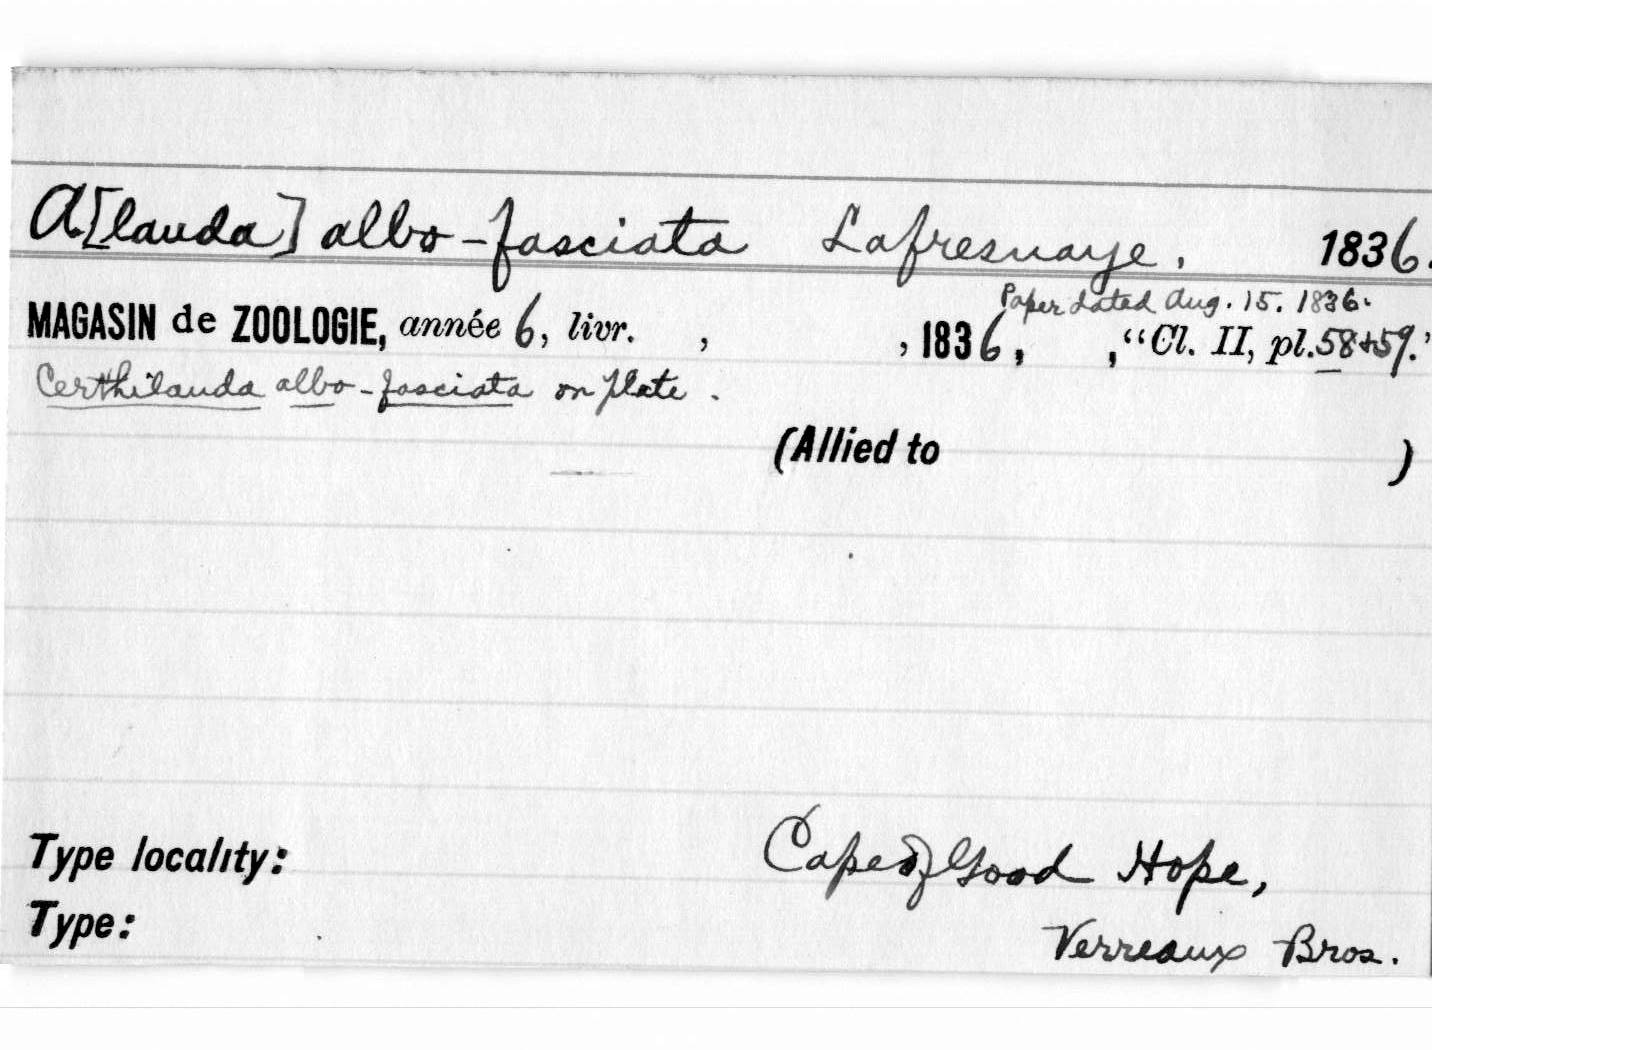 A[lauda] albo-fasciata Lafresnaye, 1836.
Paper dated Aug. 15. 1836.
MAGASIN de ZOOLOGIE, année 6, livr. , , 1836, , "Cl. II, pl. 58+59."
Certhilauda albo-fasciata on plate.
(Allied to )
Type locality: Cape of Good Hope,
Type: Verreaux Bros.